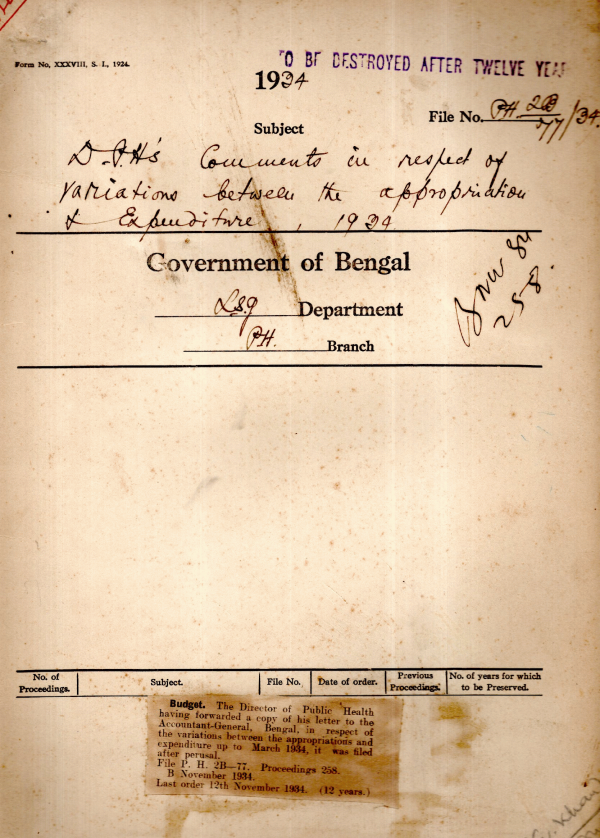 Form No. XXXVIII, S. I., 1924.
TO BE DESTROYED AFTER TWELVE YEA
1934
File No. PH 2B
77/34
Subject
D.P.H's Comments in respect of
variations between the appropriation
& Expenditure, 1934
Government of Bengal
L.S.G Department
P.H. Branch
B Nov 34
258.
No. of Proceedings.
Subject.
File No.
Date of order.
Previous Proceedings.
No. of years for which to be Preserved.
Budget. The Director of Public Health
having forwarded a copy of his letter to the
Accountant-General, Bengal, in respect of
the variations between the appropriations and
expenditure up to March 1934, it was filed
after perusal.
File P. H. 2B—77. Proceedings 258.
B November 1934.
Last order 12th November 1934. (12 years.)